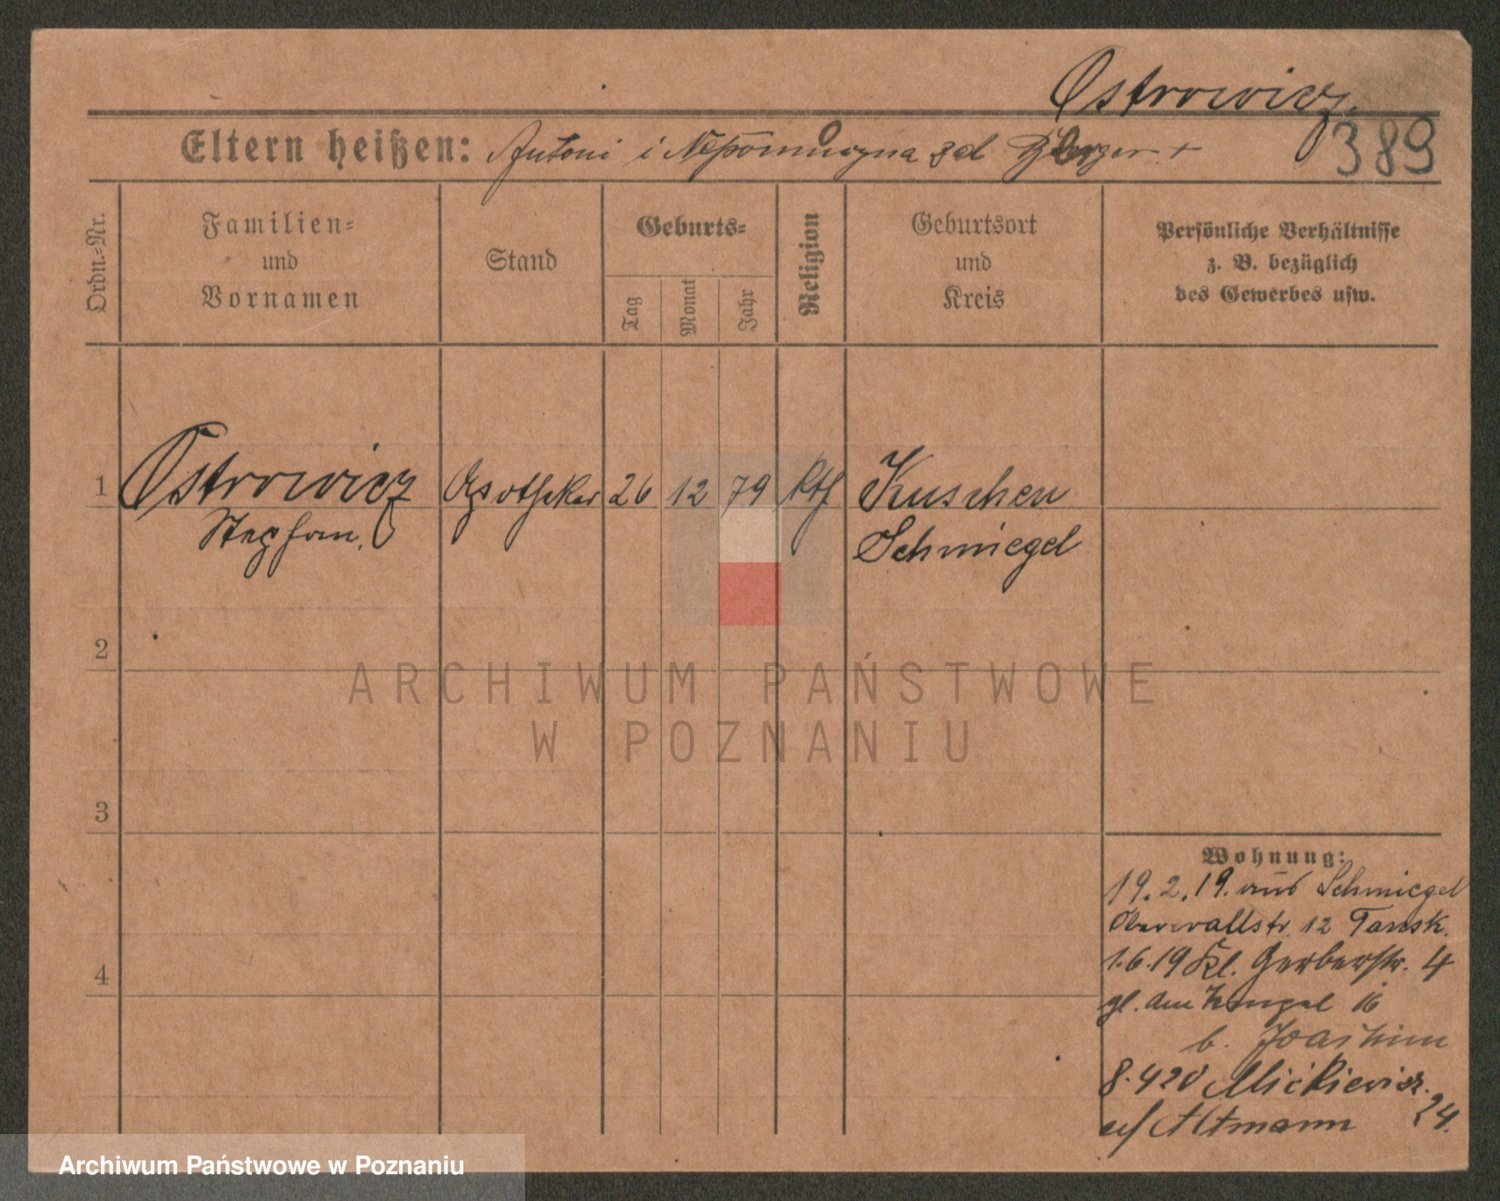 Ostrowicz.
389
Eltern heißen: Antoni i Nepomucyna zd
Ordn.=Nr.
Familien=
und
Vornamen
Stand
Geburts=
Tag
Monat
Jahr
Religion
Geburtsort
und
Kreis
Persönliche Verhältnisse
z. B. bezüglich
des Gewerbes usw.
1 Ostrowicz Apotheker 26 12 79 kth Kuschen
Stephan. Schmiegel
2
3
4
Wohnung:
19.2.19. aus Schmiegel
Oberwallstr. 12 Tansk.
1.6.19 Kl. Gerberstr. 4
gl. 16
b. Joachim
8.420 Mickiewicz. 24.
Altmann
ARCHIWUM PAŃSTWOWE
W POZNANIU
Archiwum Państwowe w Poznaniu